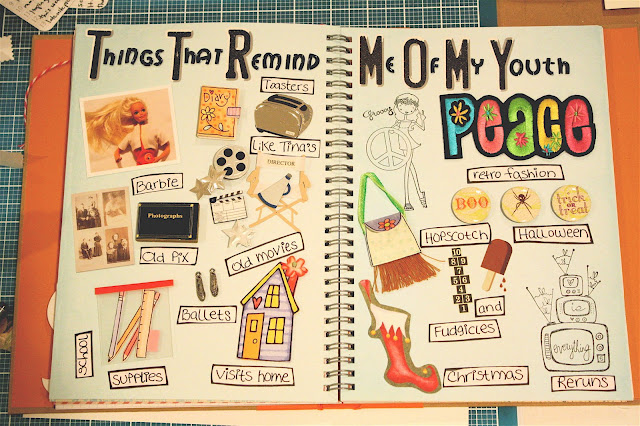 Things That Remind
Me Of My Youth
Toasters
Like Tina's
Diary
Barbie
DIRECTOR
Photographs
Old Pix
Old movies
Ballets
School
Supplies
Visits home
Groovy
Peace
retro fashion
BOO
trick
or
treat
Hopscotch
Halloween
10
8 9
7
5 6
4
2 3
1
and
Fudgicles
Christmas
tv
is
everything
Reruns